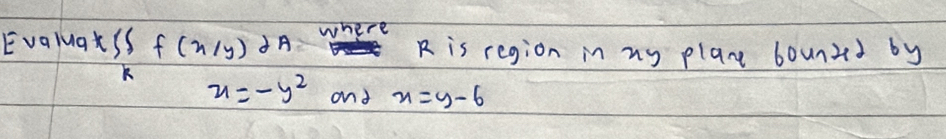 Evaluate ∬ f(x,y) dA where R is region in xy plane bounded by
R
x = -y² and x = y-6